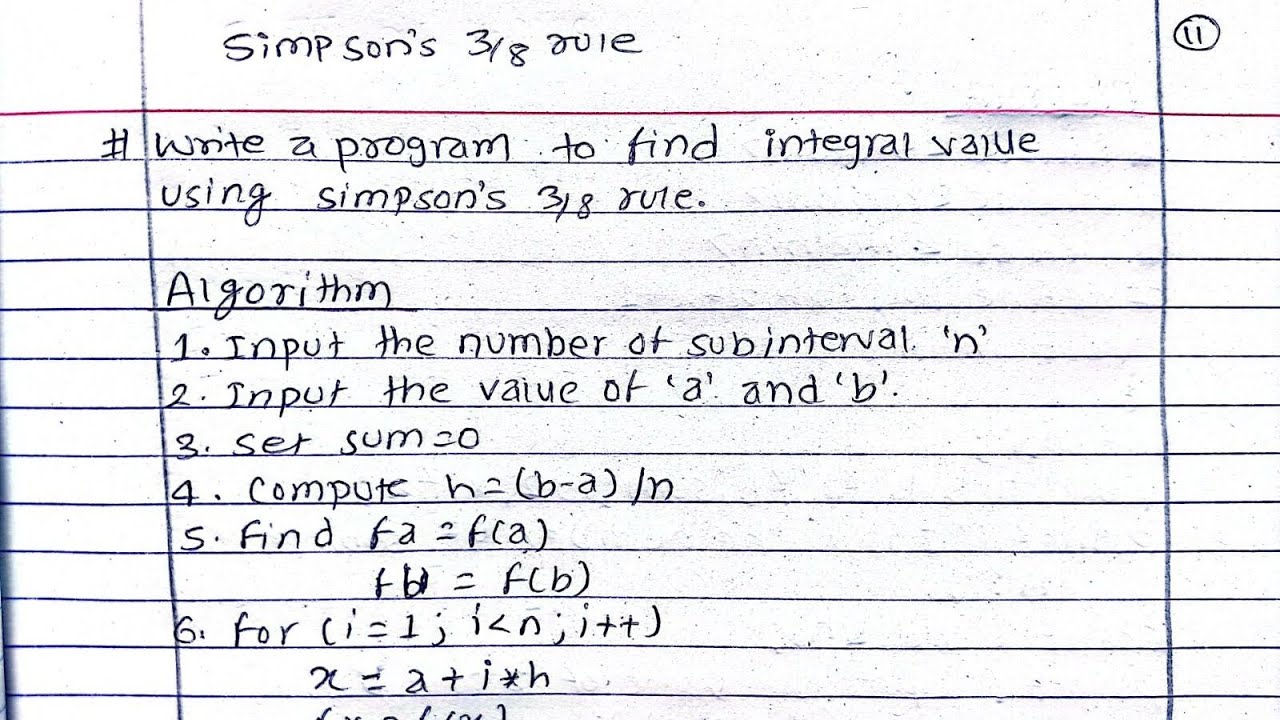 Simpson's 3/8 rule
11
# Write a program to find integral value
using simpson's 3/8 rule.
Algorithm
1. Input the number of subinterval 'n'
2. Input the value of 'a' and 'b'.
3. set sum=0
4. compute h=(b-a)/n
5. Find fa = f(a)
fb = f(b)
6. for (i=1; i<n; i++)
x = a + i*h
fx = f(x)